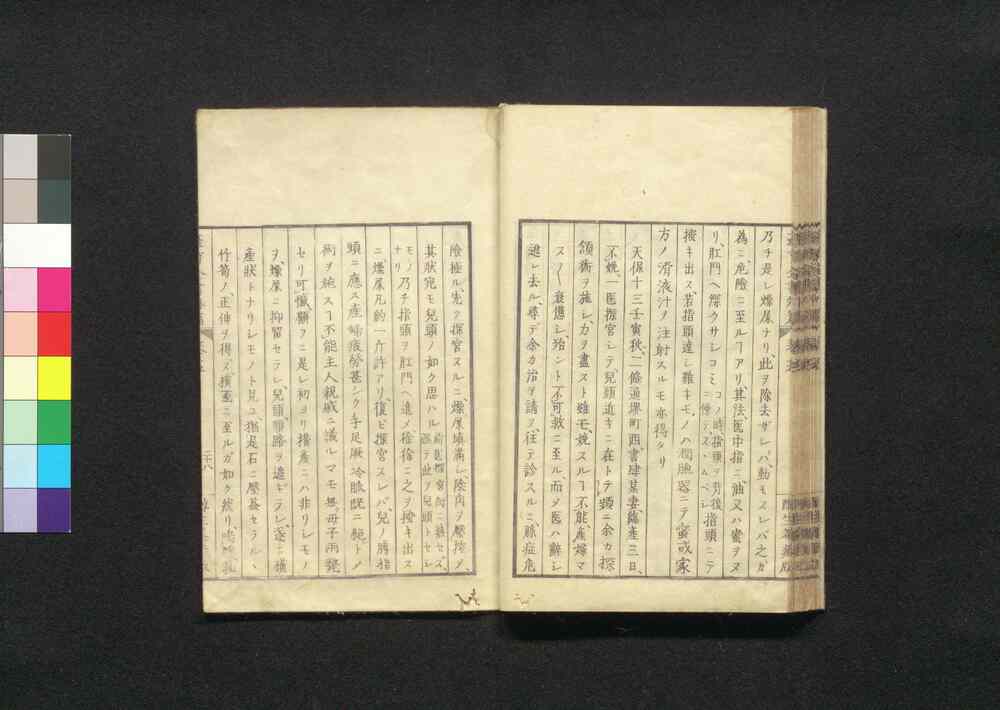 乃チ是レ燥屎ナリ、此ヲ除去ザレバ、動モスレバ之カ
為ニ危險ニ至ルヿアリ其法、医中指ニ、油又ハ蜜ヲヌ
リ、肛門ヘ深クサシコミ、コノ時指頭ヲ背後
ニ傍テ、スヽムベシ指頭ニテ
按キ出ス、若指頭達シ難キモノハ潤腸器ニテ蜜或家
方ノ滑液汁ヲ注射スルモ亦得タリ
天保十三壬寅秋、二條通堺町西書肆某妻臨産三日、
不娩、一医探宮シテ、兒頭近キニ在トテ頻ニ余カ探
領術ヲ施シ、力ヲ盡スト雖モ、娩スルヿ不能、産婦マ
スノ衰憊シ、殆ント不可救ニ至ル、而メ医ハ辭シ
遁レ去ル、尋デ余カ治ヲ請フ、往テ診スルニ脈症危
險極ル、先ツ探宮スルニ、燥屎填滿シ、陰内ヲ壓搾ヲ、
其狀宛モ兒頭ノ如ク思ハル
モノ乃チ指頭ヲ肛門ヘ進メ徐徐ニ之ヲ按キ出ス
ニ、燥屎凡約一斤許アリ、復ビ探宮スレバ、兒ノ
頭ニ應ス産婦疲勞甚シク手足厥冷脈既ニ絶トノ
術ヲ施スヿ不能主人親戚ニ議ルマモ無、母子兩斃
セリ可憐、顧フニ是レ初ヨリ横産ニハ非リレモノ
ヲ、燥屎ニ抑留セラレ、兒頭順路ヲ遮ギラレ、遂ニ横
産狀トナリレモノト見ユ、猶是石ニ壓葢セラル、
竹筍ノ、正伸ヲ得ズ、横
ニ至ルガ如ク然リ、